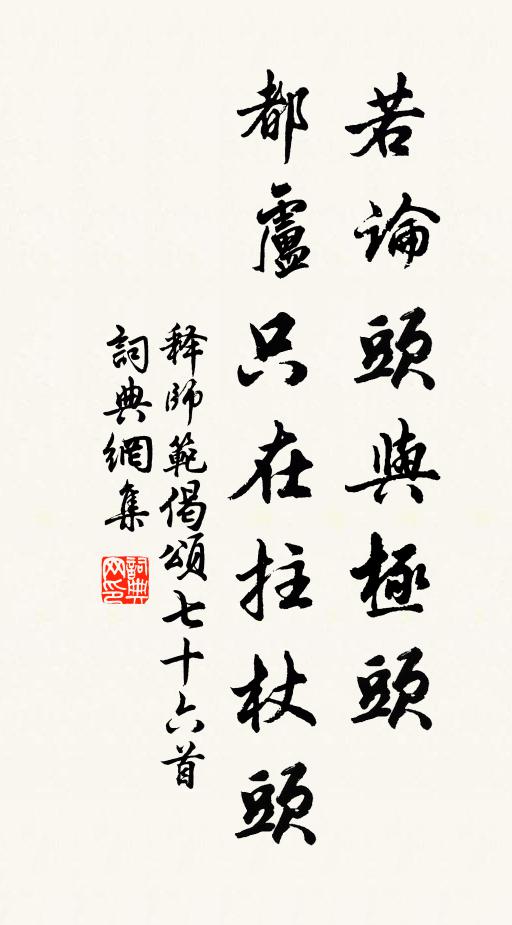 若論頭與極頭
都盧只在拄杖頭
释師範偈頌七十六首
詞典網集
詞典网印